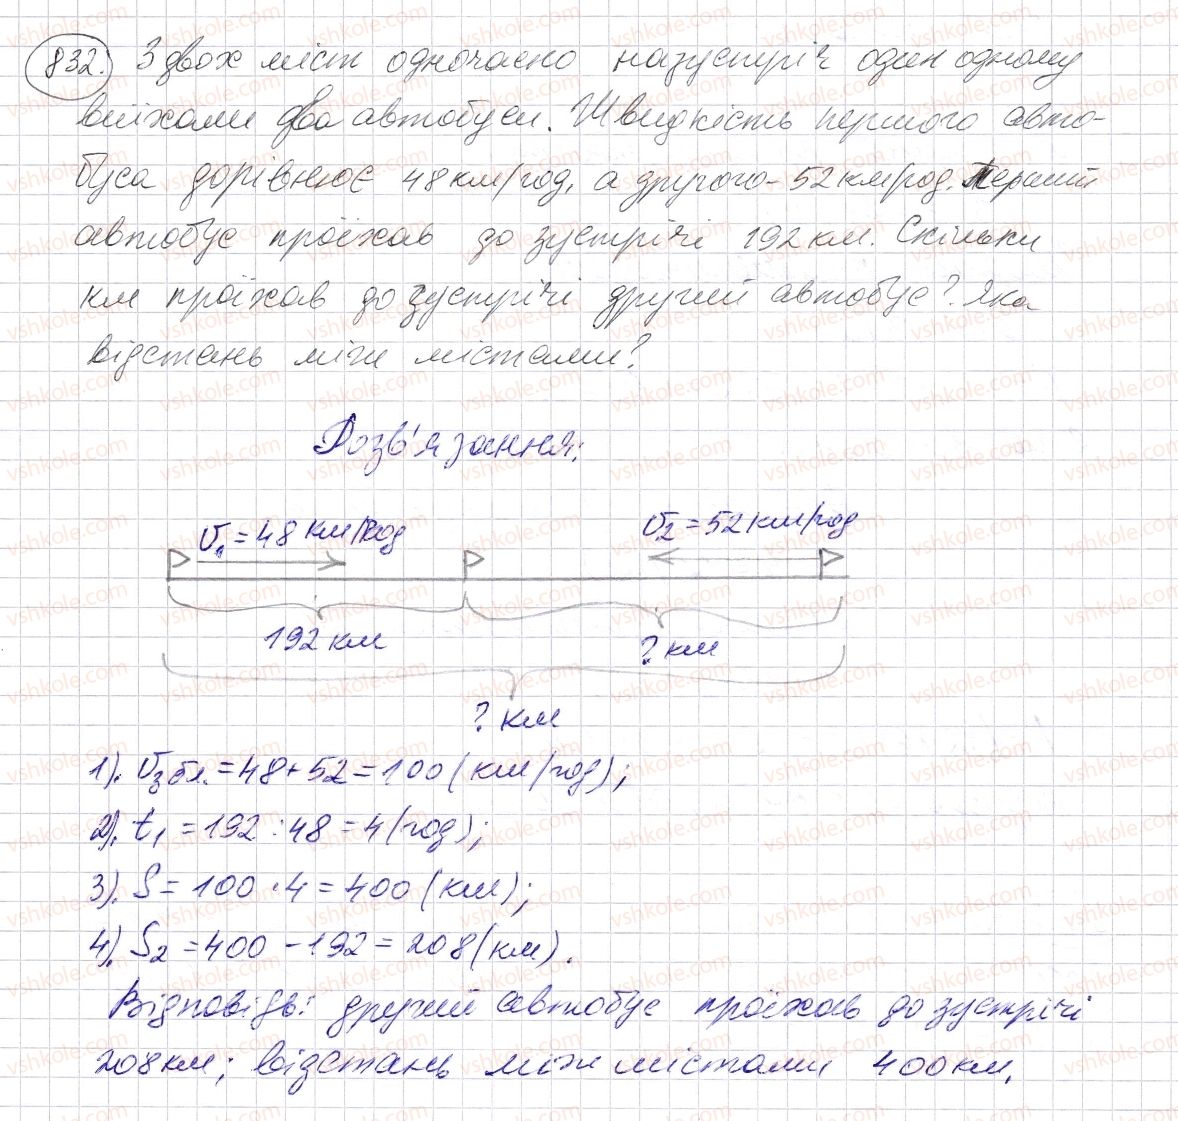 832. З двох міст одночасно назустріч один одному
виїхали два автобуси. Швидкість першого авто-
буса дорівнює 48 км/год, а другого - 52 км/год. Перший
автобус проїхав до зустрічі 192 км. Скільки
км проїхав до зустрічі другий автобус? Яка
відстань між містами?
Розв'язання:
υ₁ = 48 км/год
υ₂ = 52 км/год
192 км
? км
? км
1). υзбл. = 48 + 52 = 100 (км/год);
2). t₁ = 192 : 48 = 4 (год);
3). S = 100 · 4 = 400 (км);
4). S₂ = 400 - 192 = 208 (км).
Відповідь: другий автобус проїхав до зустрічі
208 км; відстань між містами 400 км.